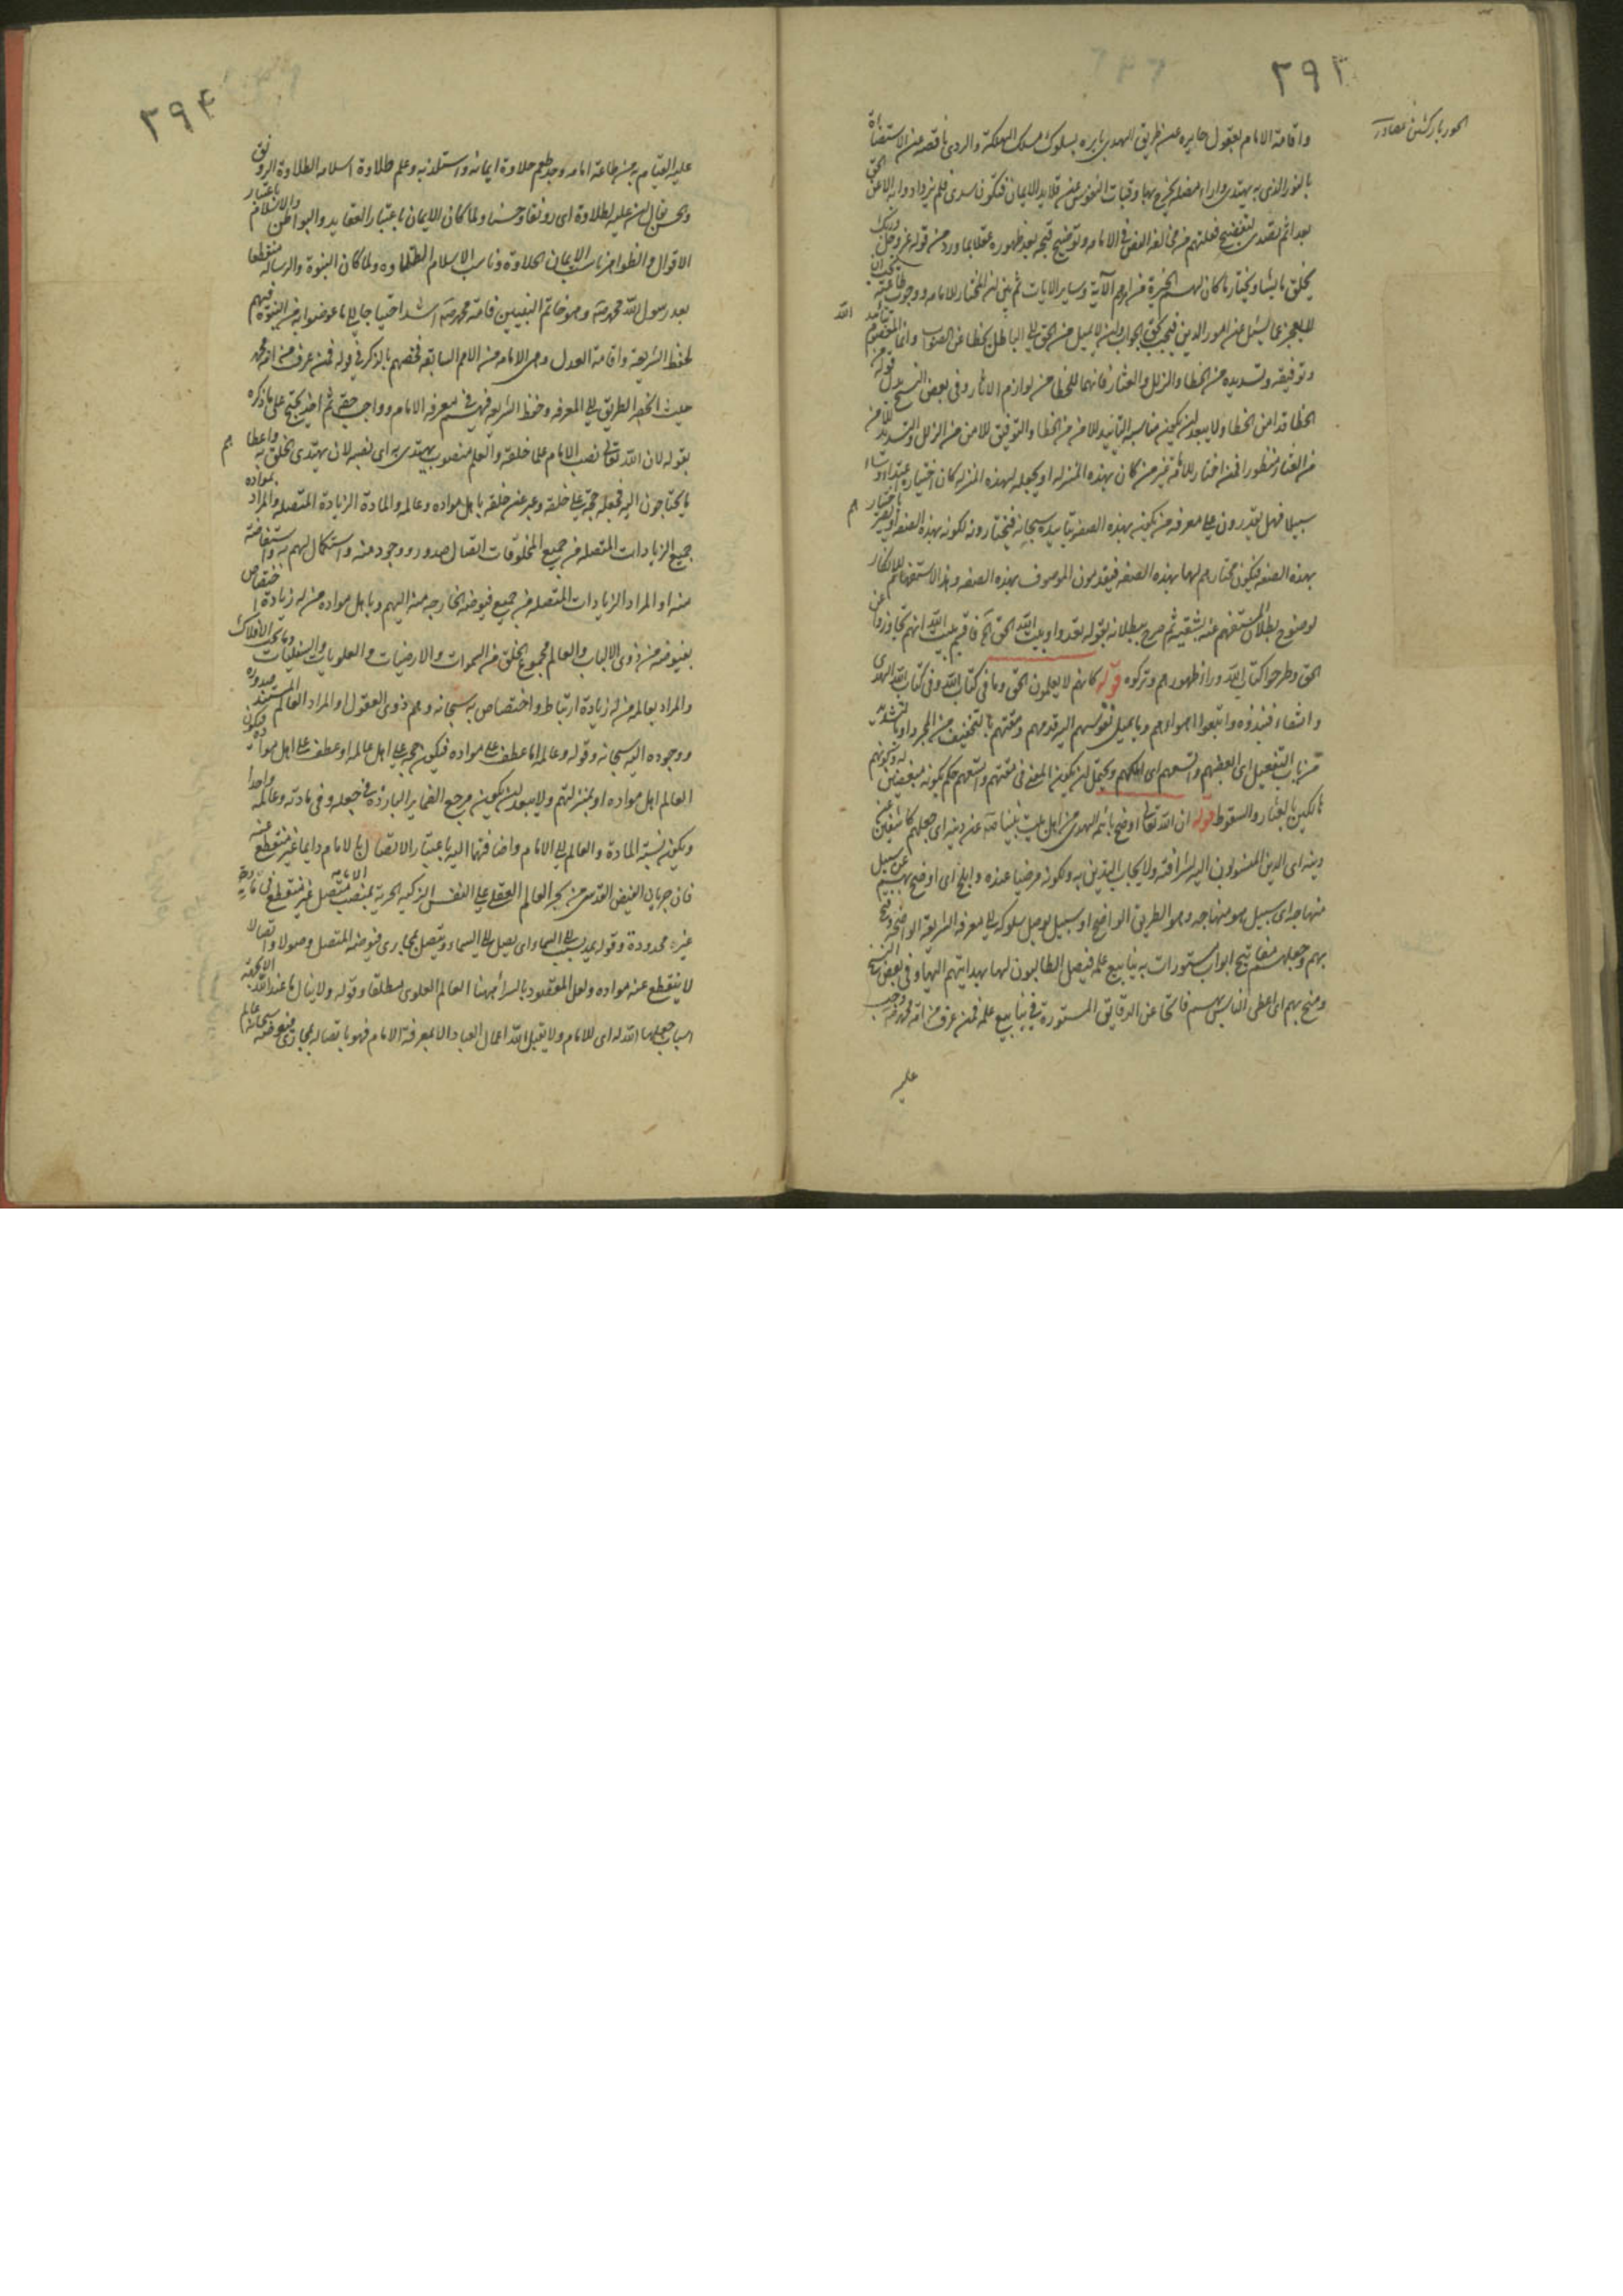 ٢٩٣
الحور بازكشتن مصادر
واقامة الامام بعقول حايره عن طريق الهدى بايره بسلوك مسلك الهلكة والردى ناقصه عن الاستضاءة
بالنور الذى به يهتدى واراء مضله يخرج بها النفوس عن قلايد الايمان فتكون سدى فلم يزدادوا به الا عن الحق
بعدا ثم تصدى لتفضيح فعلتهم من مخالفة النص فى الامامه وتوضيح قبحه بعد ظهوره عقلا بما ورد من قوله عز وجل وربك
يخلق ما يشا ويختار ما كان لهم الخيرة من امرهم الآية وساير الايات ثم بين ان المختار للامامه ووجوب طاعته يجب ان
لا يعجز عما يسئل عنه امور الدين فيجيب بحق الجواب لئن لا يميل من الحق الى الباطل بخطا عن الصواب وانما المعصوم بتائيد الله
وتوفيقه وتسديده من الخطا والزلل والعثار فانهما للخطا من لوازم الاثار وفى بعض النسخ بدل قوله من
الخطا قد امن الخطا ولا يبعد ان يكون مناسبه التأييد للامن من الخطا والتوفيق للامن من الزلل والتسديد للامن
من العثار منظورا فمن اختار للامامه غير من كان بهذه المنزله او يجعله لهذه المنزله كان اختياره
سبيلا فهل يقدرون على معرفه من يكون بهذه الصفه بتاييده سبحانه فيختارونه لكونه بهذه الصفه او يصير باختيارهم
بهذه الصفه فيكون مختارهم لها بهذه الصفه فيقدمون الموصوف بهذه الصفه وهذا الاستفهام للانكار
لوضوح بطلان المستفهم عنه بشقيه ثم صرح ببطلانه بقوله تعدوا وبيت الله الحق الخ فاقسم ببيت الله انهم تجاوزوا عن
الحق وطرحوا كتاب الله وراء ظهورهم وتركوه قوله كانهم لا يعلمون الحق وما فى كتاب الله وفى كتاب الله الهدى
والشفاء فنبذوه واتبعوا اهواءهم وما يميل نفوسهم اليه فذمهم ومقتهم بالتخفيف من المجرد او بالتشديد
من باب التفعيل اى ابغضهم واتعسهم اى اهلكهم ويحتمل ان يكون المعنى فى مقتهم واتعسهم حكم بكونه مبغضين له وبكونهم
هالكين بالعثار والسقوط قوله ان الله تعالى اوضح بائمه الهدى من اهل بيت نبينا صه عن دينه اى جعلهم كاشفين عن
دينه اى الدين المنسوب اليه لشرافته ولايجاب التدين به ولكونه مرضيا عنده وابلج اى اوضح بهم عن سبيل
منهاجه اى سبيل هو منهاجه وهو الطريق الواضح او سبيل يوصل سلوكه الى معرفة الشريعة الواضحه وفتح
بهم وجعلهم مفاتيح ابواب مستورات به ينابيع علمه فيصل الطالبون لها بهدايتهم اليها وفى بعض النسخ
ومنح بهم اى اعطى الناس بهم فاتحا عن الدقايق المستورة فى ينابيع علمه فمن عرف من امة محمد صه وجب
عليه
٢٩٤
عليه القيام به من طاعة امامه وجد طعم حلاوة ايمانه واستلذ به وعلم طلاوة اسلامه الطلاوة الرونق
والحسن يقال ان عليه لطلاوة اى رونقا وحسنا ولما كان الايمان باعتبار العقايد والبواطن والاسلام باعتبار
الاقوال والظواهر ناسب الايمان الحلاوة وناسب الاسلام الطلاوه ولما كان النبوة والرساله منقطعا
بعد رسول الله محمد صه وهو خاتم النبيين فامة محمد صه اشد احتياجا الى ما عوضوا به من النبوة فيهم
لحفظ الشريعة واقامة العدل وهى الامامه من الامم السابقه فخصهم بالذكر فى قوله فمن عرف من امة محمد
حيث انحصر الطريق الى المعرفه وحفظ الشريعه فيهم فى معرفة الامام وواجب حقه ثم اخذ يحتج على ما ذكره
بقوله لان الله تعالى نصب الامام علما لخلقه والعلم منصوب يهتدى به اى نصبه لان يهتدى الخلق به واعطاهم
ما يحتاجون اليه فجعله حجة على خلقه وعبر عن خلقه باهل مواده وعالمه والمادة الزيادة المتصله والمراد بمواده
جميع الزيادات المتصله من جميع المخلوقات اتصال صدور ووجود منه واستكمال لهم به واستفاضة
منه او المراد الزيادات المتصله من جميع فيوضه الخارجه منه اليهم وباهل مواده من له زيادة اختصاص
بفيوضه من ذوى الالباب والعالم مجموع الخلق من السموات والارضيات والعلويات والسفليات وما تحت الافلاك
والمراد بعالمه من له زيادة ارتباط واختصاص به سبحانه وهم ذوى العقول او المراد العالم المستند صدوره
ووجوده اليه سبحانه وقوله وعالمه اما عطف على مواده فيكون حجه على اهل عالمه او عطف على اهل مواده فيكون
العالم اهل مواده او بمنزلتهم ولا يبعد ان يكون مرجع الضماير البارزه فى جعله وفى مادته وعالمه واحدا
ويكون نسبة المادة والعالم الى الامام واضافتهما اليه باعتبار الاتصال بالامام دايما غير منقطع عنه
فان جريان الفيض القدسى من بحر العالم العقلى على النفس الزكيه الحرية بمنصب الامامه متصل غير منقطع
غيره محدودة وقوله يمد بسبب الى السماء اى يصل الى السماء ويتصل بمجارى فيوضه المتصل وصولا واتصالا
لا ينقطع عنه مواده ولعل المقصود بالسماء ههنا العالم العلوى مطلقا وقوله ولا ينال ما عند الله الا بجهة
اسباب جعلها الله له اى للامام ولا يقبل الله اعمال العباد الا بمعرفة الامام فهو باتصاله بمجارى فيوضه سبحانه عالم